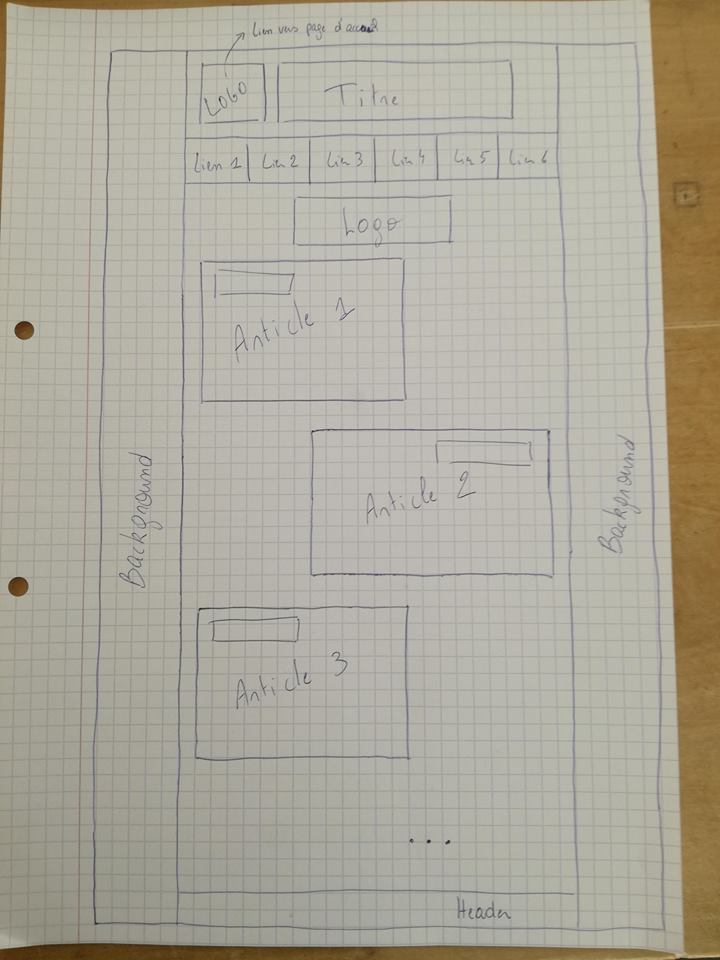 Lien vers page d'accueil
LOGO
Titre
Lien 1 Lien 2 Lien 3 Lien 4 Lien 5 Lien 6
Logo
Article 1
Article 2
Background
Background
Article 3
...
Header